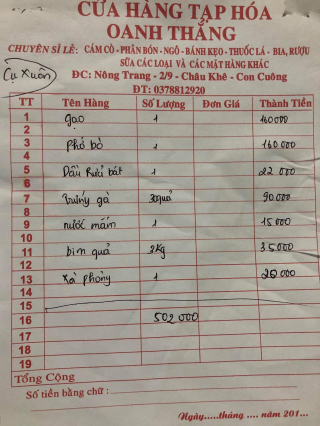 CỬA HÀNG TẠP HÓA
OANH THẮNG
CHUYÊN SỈ LẺ: CÁM CÒ - PHÂN BÓN - NGÔ - BÁNH KẸO - THUỐC LÁ - BIA, RƯỢU
SỮA CÁC LOẠI VÀ CÁC MẶT HÀNG KHÁC
Cụ Xuân
ĐC: Nông Trang - 2/9 - Châu Khê - Con Cuông
ĐT: 0378812920
TT Tên Hàng Số Lượng Đơn Giá Thành Tiền
1 gạo 1 160000
2
3 phở bò 1 160 000
4
5 Dầu Rửa bát 1 22 000
6
7 trứng gà 30quả 90000
8
9 nước mắm 1 15000
10
11 bim quả 2kg 35000
12
13 xà phòng 1 20000
14
15
16 502 000
17
18
19
Tổng Cộng
Số tiền bằng chữ:
Ngày.....tháng .... năm 201...